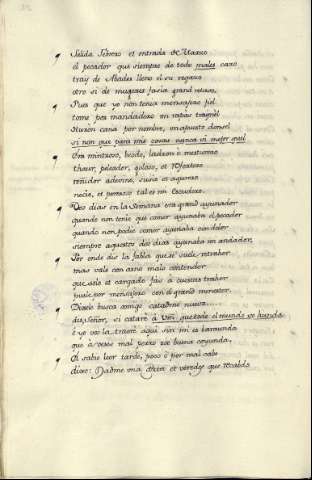 Salida Febrero et entrada de Marzo
el pecador que siempre de todo males caxo
tray de Abades lleno el su regazo
otro si de mugeres facia grand
Pues que yo non tenia mensagero fiel
tome por mandadero un rapas traynel
Huron avia por nombre, un apuesto donsel
si non que para mi cosas nunca vi mejor que el
Era mintroso, bebdo, ladron é mesturero
thaur, peleador, goloso, et refertero
reñidor adevino, susio et agorero
necio, et peresoso tal es mi Escudero.
Dos dias en la Semana era grand ayunador
quando non tenia que comer ayunaba el pecador
quando non podia comer ayunaba con dolor
siempre aquestos dos dias ayunaba mi andador.
Por ende dis la fabla que se suele retraher
mas vale con asno malo contender
que solo et cargado fas à cuestas traher
puse por mensagero con el grand menester.
Dixele busca amigo catadme nueva
dis, Señor, si cataré á una que todo el mundo se hunda
é yo vos la traeré aqui sin mi es baraunda
que à veses mal perro roe buena coyunda.
El sabie leer tarde, poco é por mal cabo
dixo: Dadme una carta et veredes que recabdo